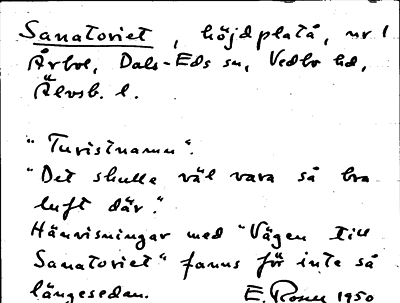 Sanatoriet, höjdplatå, nr 1
Årbol, Dals-Eds sn, Vedbo hd,
Älvsb. l.
"Turistnamn".
"Det skulle väl vara så bra
luft där."
Hänvisningar med "Vägen till
Sanatoriet" fanns för inte så
längesedan. E. Rosen 1950